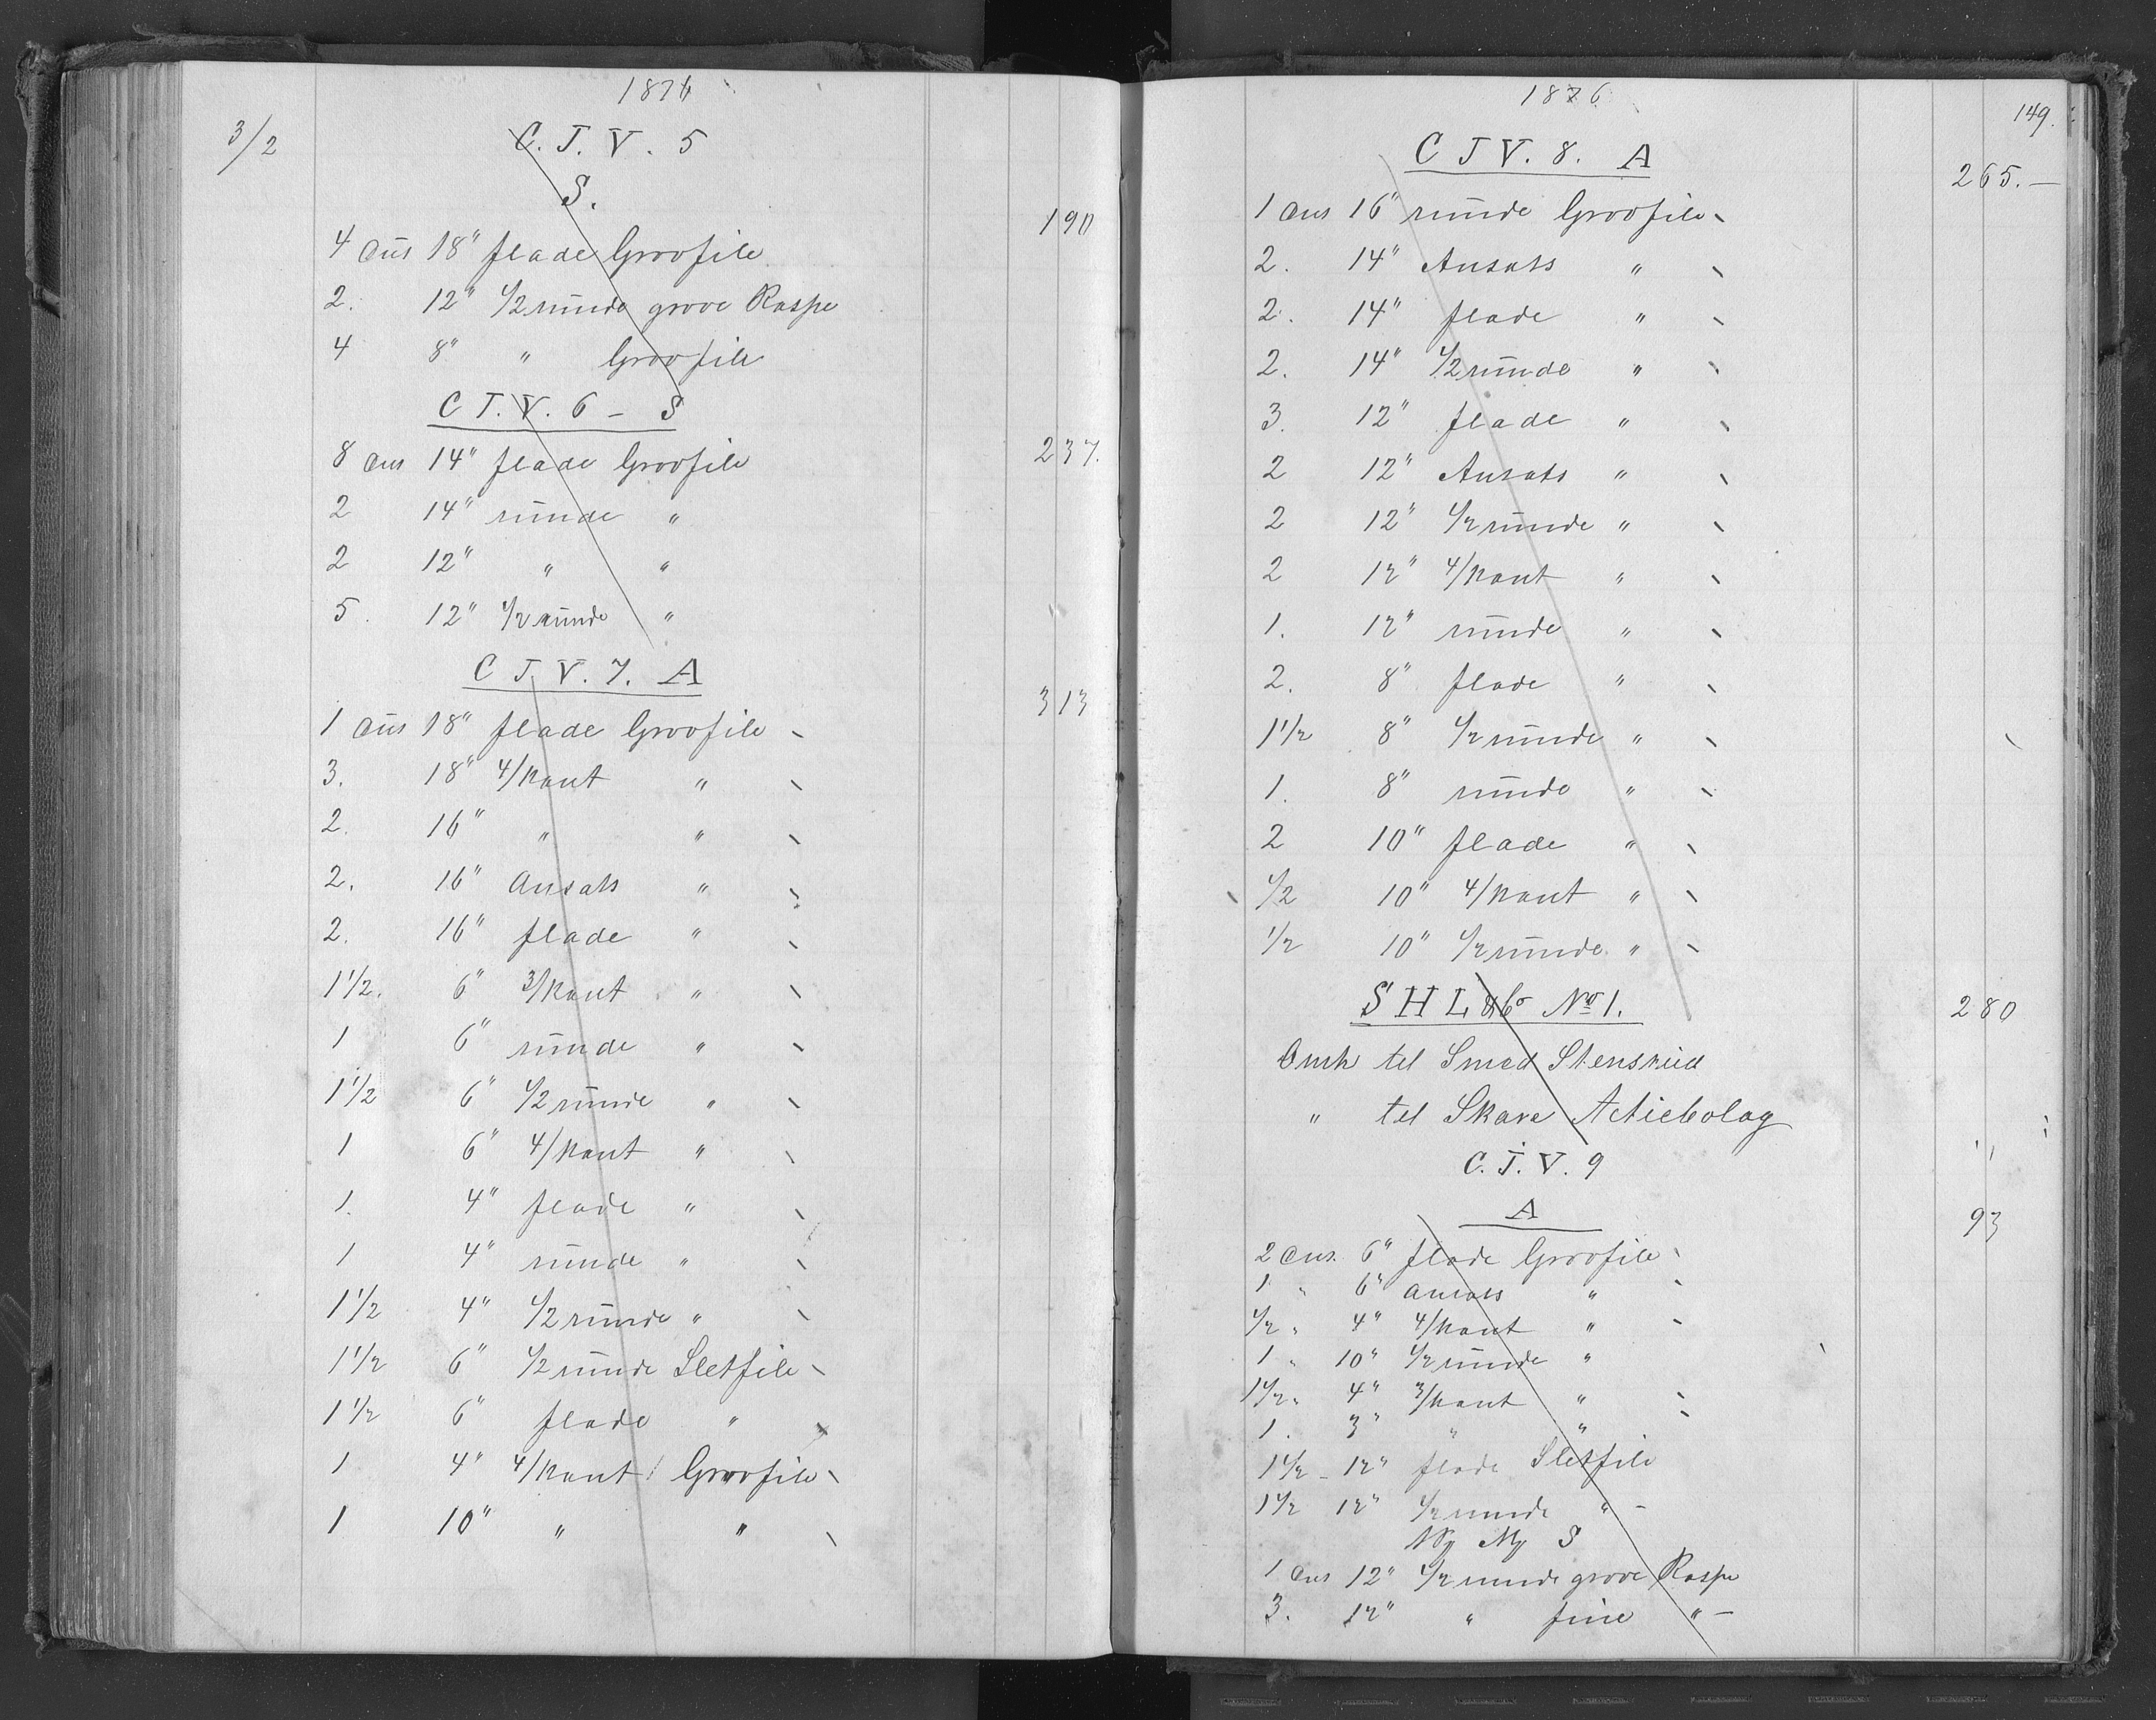 1876
3/2
C. J. V. 5
S.
190
4 Dus 18" flade Grovfile
2. 12" 1/2 runde grove Raspe
4 8" " Grovfile
C J. V. 6 - S
237.
8 Dus 14" flade Grovfile
2 14" runde "
2 12" " "
5. 12" 1/2 runde "
C J. V. 7. A
313
1 Dus 18" flade Grovfile
3. 18" 4/kant "
2. 16" " "
2. 16" Ansats "
2. 16" flade "
1 1/2. 6" 3/kant "
1 6" runde "
1 1/2 6" 1/2 runde "
1 6" 4/kant "
1. 4" flade "
1 4" runde "
1 1/2 4" 1/2 runde "
1 1/2 6" 1/2 runde Sletfile
1 1/2 6" flade "
1 4" 4/kant Grovfile
1 10" " "
1876
149.
C J V. 8. A
265.—
1 Dus 16" runde Grovfile
2. 14" Ansats "
2. 14" flade "
2. 14" 1/2 runde "
3. 12" flade "
2 12" Ansats "
2 12" 1/2 runde "
2 12" 4/kant "
1. 12" runde "
2. 8" flade "
1 1/2 8" 1/2 runde "
1. 8" runde "
2 10" flade "
1/2 10" 4/kant "
1/2 10" 1/2 runde "
S H L & Co No 1.
280
til Smed Stensrud
" til Skara Actiebolag
C. J. V. 9
A
93
2 Dus. 6" flade Grovfile
1 " 6" Ansats "
1/2 " 4" 4/kant "
1 " 10" 1/2 runde "
1 1/2 " 4" 3/kant "
1. 3" " "
1 1/2 - 12" flade Sletfile
1 1/2 12" 1/2 runde " -
S
1 Dus 12" 1/2 runde grove Raspe
3. 12" " fine " -